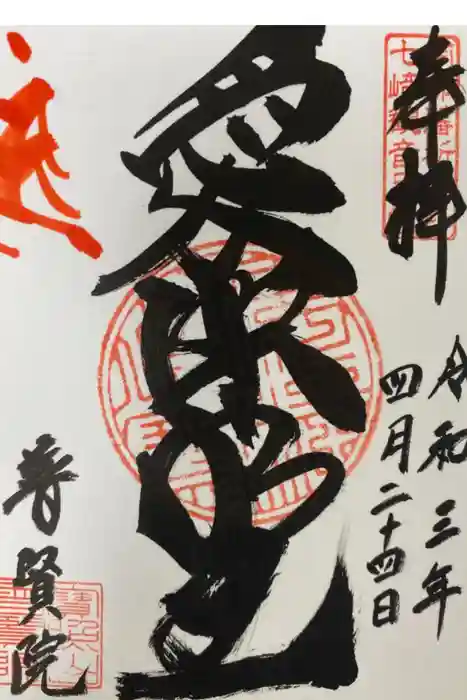 奉拝
令和三年
四月二十四日
愛染明王
普賢院